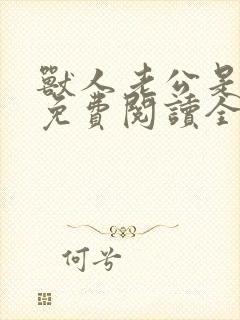 獸人老公是
免費閱讀全
何兮